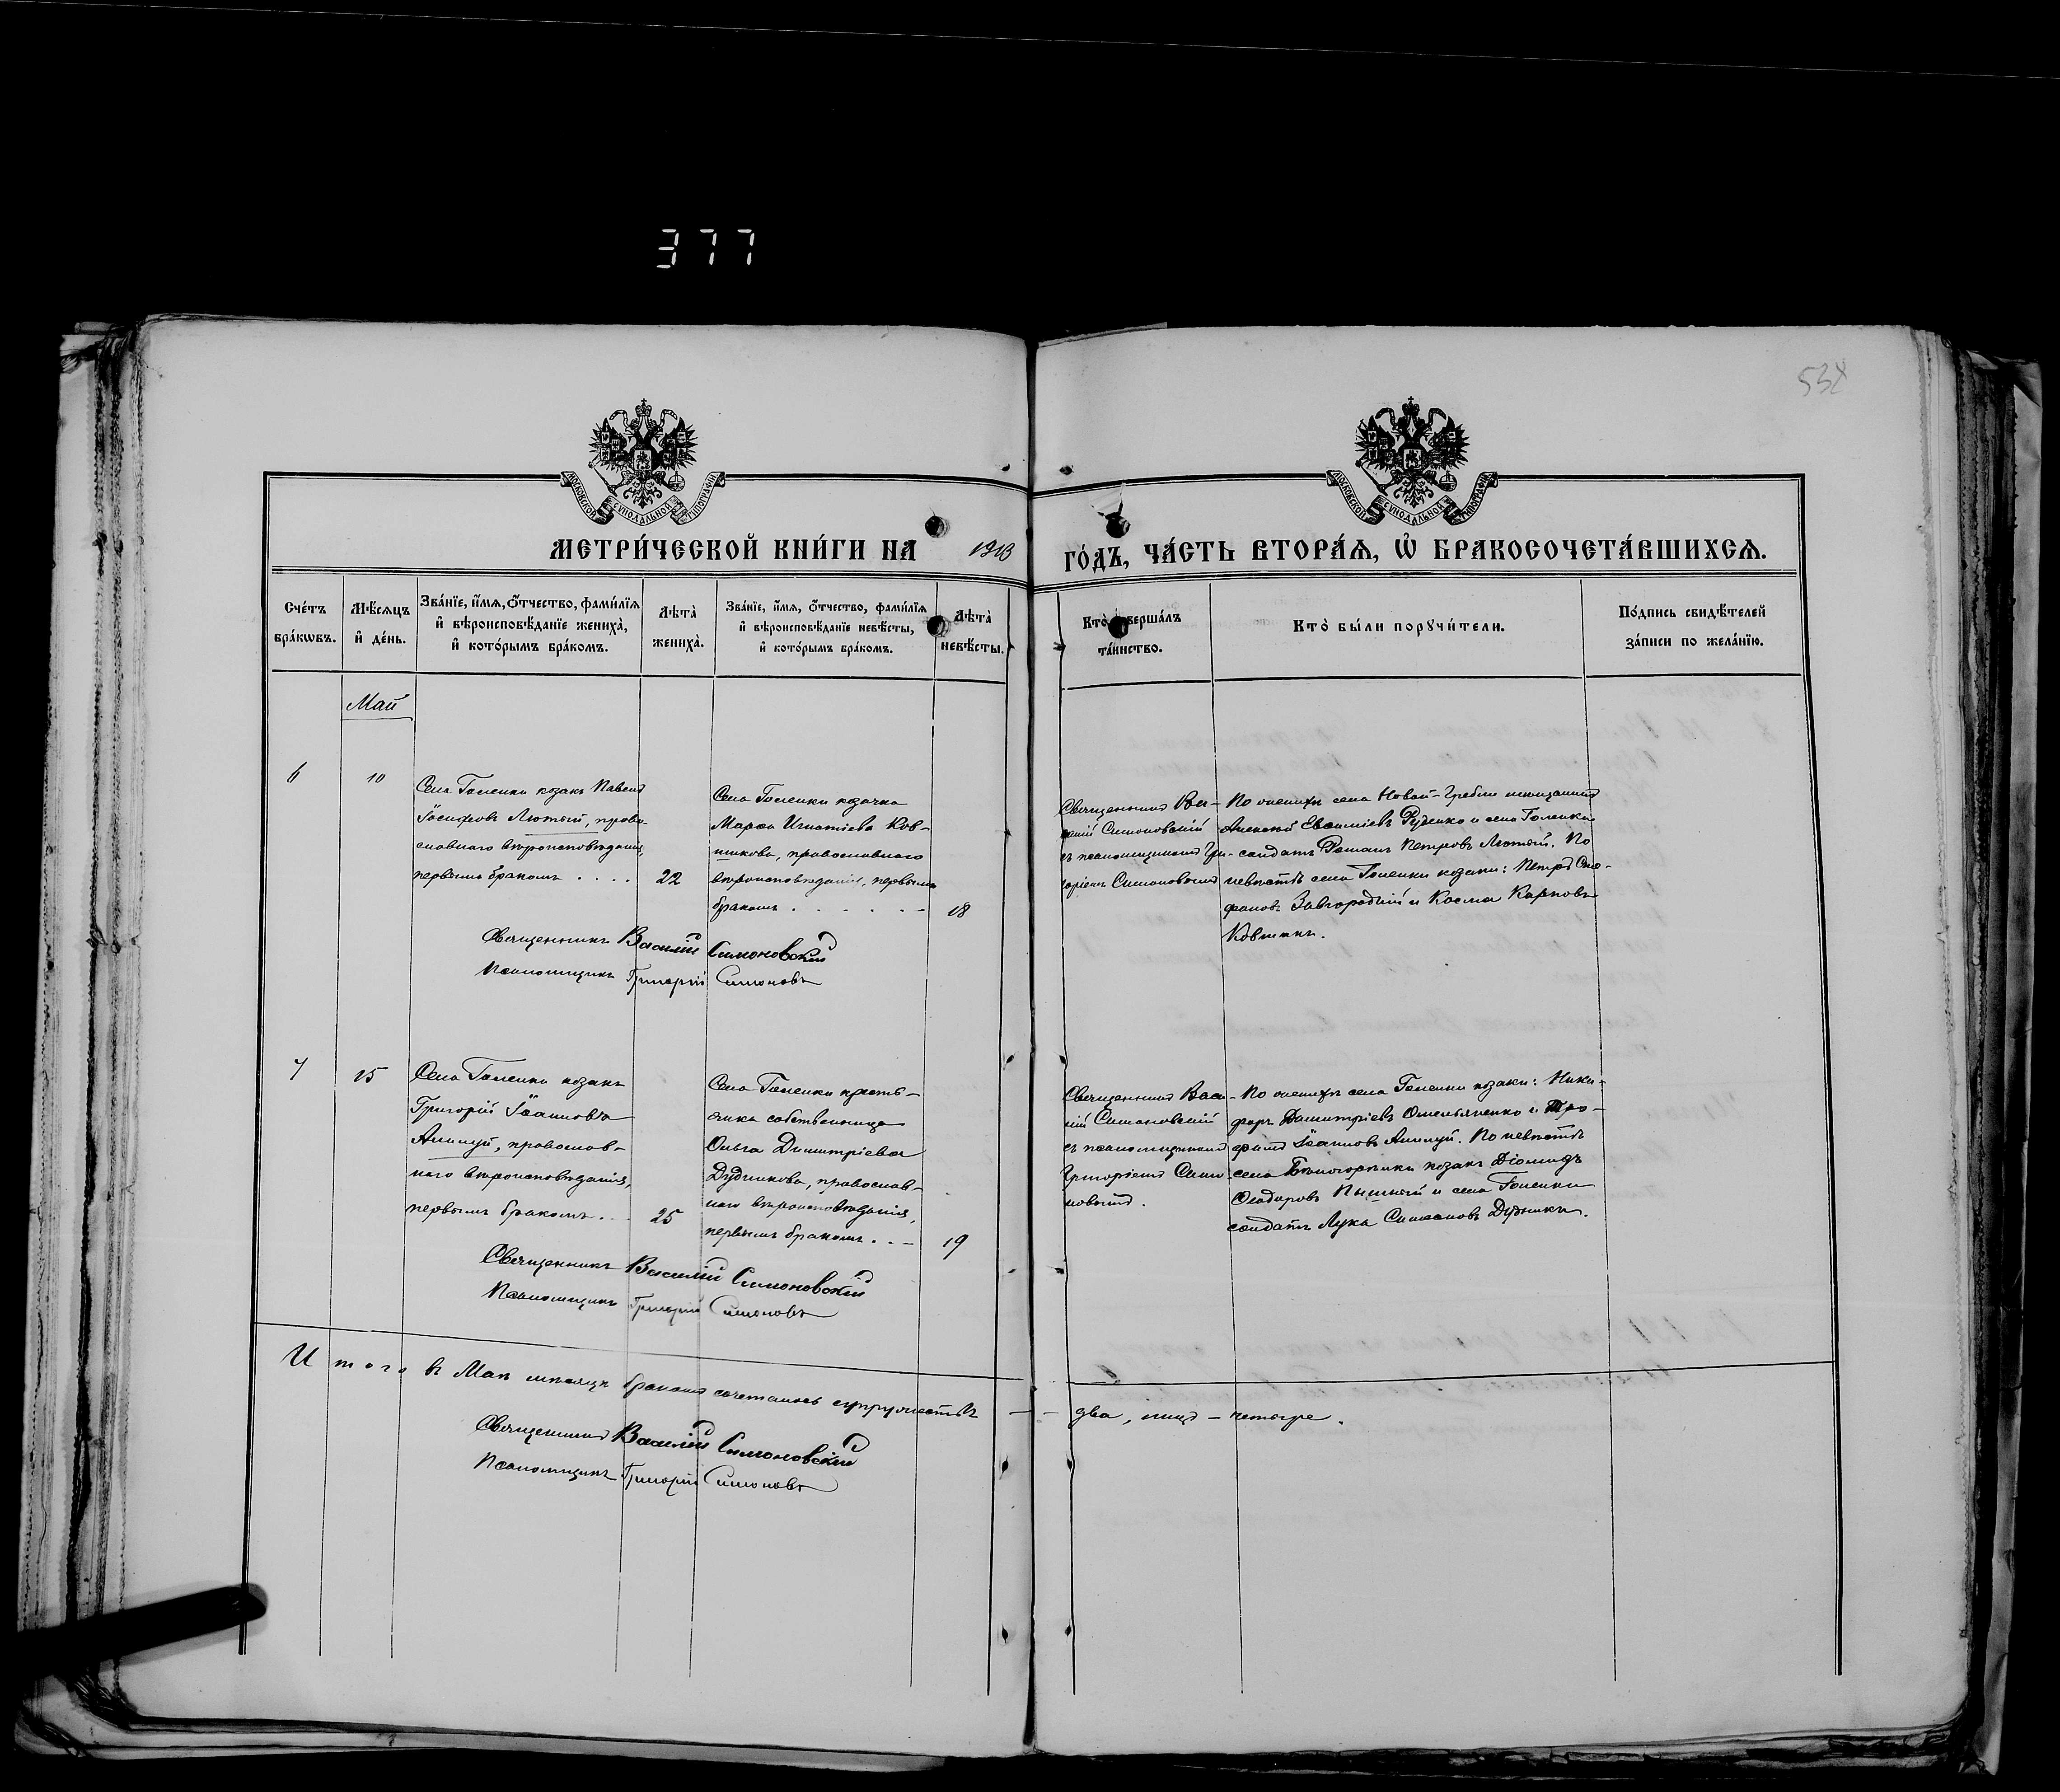 377
534
МОСКОВСКОЙ СѴНОДАЛЬНОЙ ТИПОГРАФІИ
МОСКОВСКОЙ СѴНОДАЛЬНОЙ ТИПОГРАФІИ
МЕТРИ́ЧЕСКОЙ КНИ́ГИ НА 1913 ГО́ДЪ, ЧА́СТЬ ВТОРА́Ѧ, Ѽ БРАКОСОЧЕТА́ВШИХСѦ.
Сче́тъ
бра́кѡвъ.
Мѣ́сѧцъ
и҆ де́нь.
Зва́нїе, и҆́мѧ, ѻ҆́тчество, фами́лїѧ
и҆ вѣроисповѣ́данїе жениха̀,
и҆ кото́рымъ бра́комъ.
Лѣта̀
жениха̀.
Зва́нїе, и҆́мѧ, ѻ҆́тчество, фами́лїѧ
и҆ вѣроисповѣ́данїе невѣ́сты,
и҆ кото́рымъ бра́комъ.
Лѣта̀
невѣ́сты.
Кто̀ совершáлъ
та́инство.
Кто̀ бы́ли порꙋчи́тели.
По́дпись свидѣ́телей
за́писи по жела́нїю.
Май
6
10
Села Голенки козакъ Павелъ
Іосифовъ Лютый, право-
славнаго вѣроисповѣданія,
первымъ бракомъ . . . .
22
Села Голенки козачка
Марѳа Игнатіева Ков-
шикова, православнаго
вѣроисповѣданія, первымъ
бракомъ . . . . .
18
Священникъ Ва-
силій Симоновскій
съ псаломщикомъ Гри-
горіемъ Симоновымъ
По женихѣ села Новой-Гребли мѣщанинъ
Алексій Евѳиміевъ Руденко и села Голенки
солдатъ Романъ Петровъ Лютый. По
невѣстѣ села Голенки козаки: Петръ Ѳео-
фановъ Завгородній и Косма Карповъ
Ковшикъ.
Священникъ Василій Симоновскій
Псаломщикъ Григорій Симоновъ
7
15
Села Голенки козакъ
Григорій Іоанновъ
Ачилуй, православ-
наго вѣроисповѣданія,
первымъ бракомъ . .
25
Села Голенки кресть-
янка собственница
Ольга Димитріева
Дудникова, православ-
наго вѣроисповѣданія,
первымъ бракомъ . . –
19
Священникъ Васи-
лій Симоновскій
съ псаломщикомъ
Григоріемъ Симо-
новымъ.
По женихѣ села Голенки козаки: Ники-
форъ Димитріевъ Омельяненко и Тро-
фимъ Іоанновъ Ачилуй. По невѣстѣ
села Бѣлогорѣлки козакъ Діомидъ
Ѳеодоровъ Пышный и села Голенки
солдатъ Лука Симеоновъ Дудникъ.
Священникъ Василій Симоновскій
Псаломщикъ Григорій Симоновъ
Итого въ Маѣ мѣсяцѣ бракомъ сочеталось супружествъ — – два, лицъ – четыре.
Священникъ Василій Симоновскій
Псаломщикъ Григорій Симоновъ